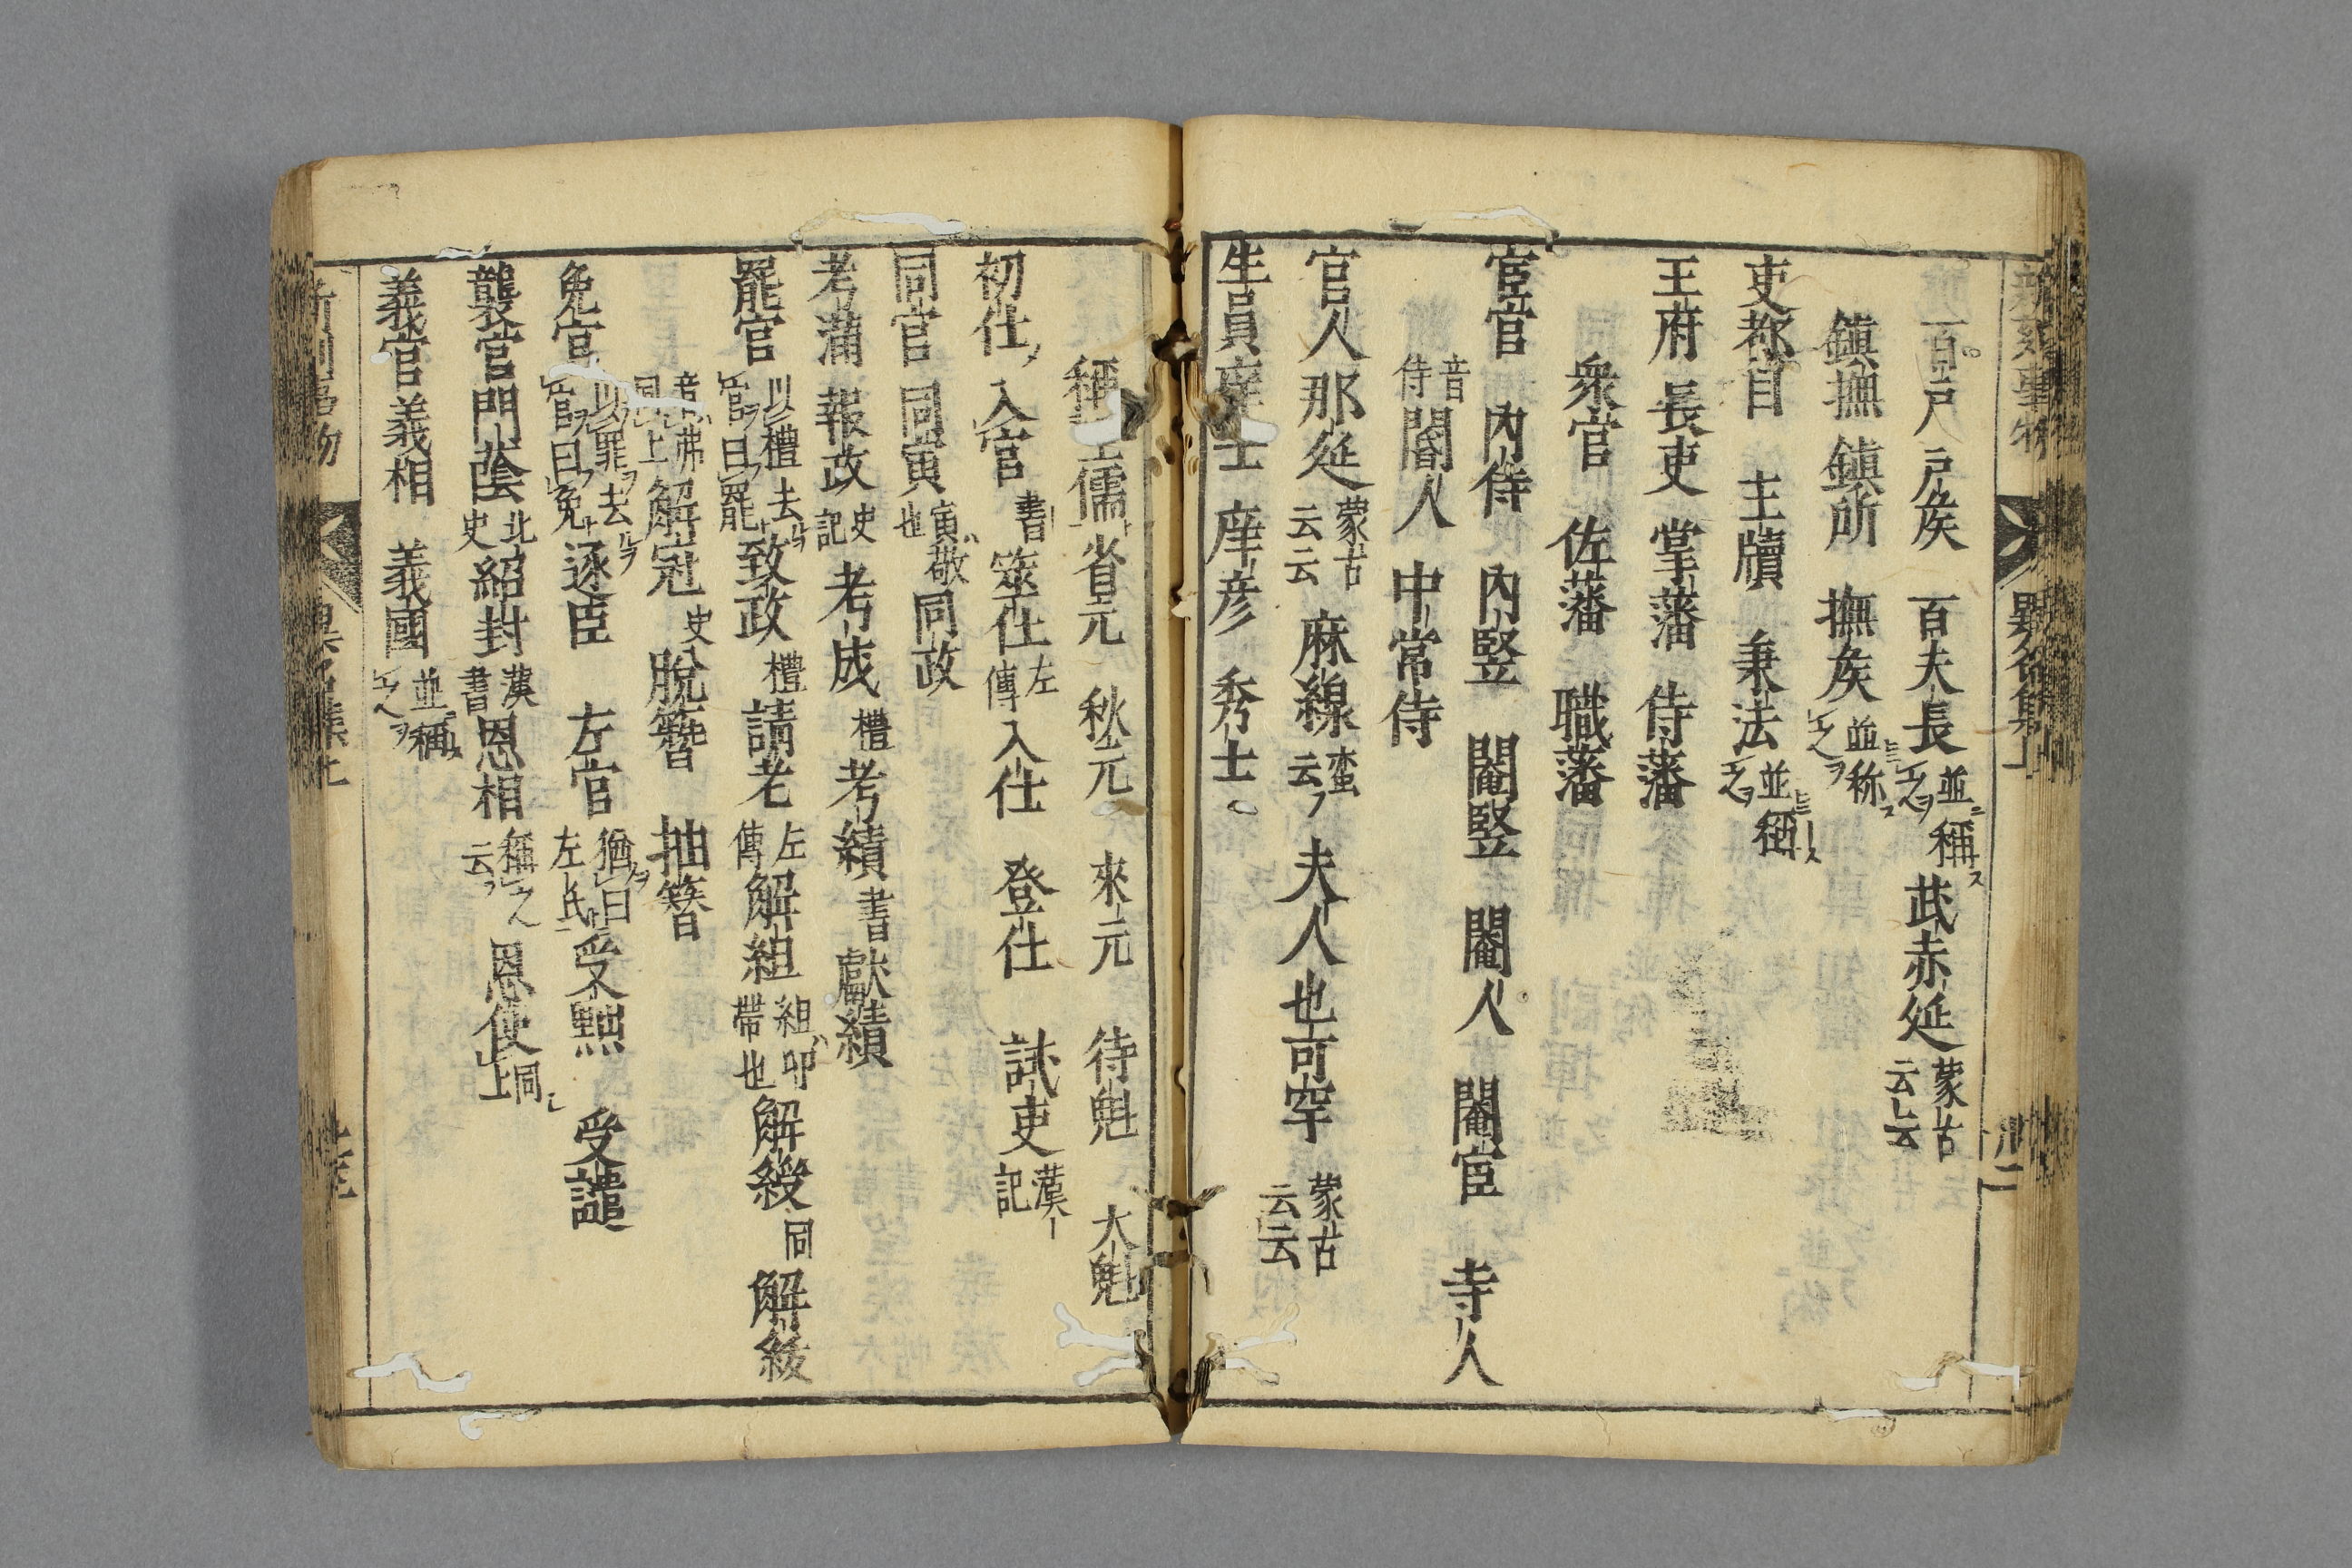 新刻事物 異名集上 卅二
百戸 戸矦 百夫長 並ニ稱ス之ヲ 武赤延 蒙古云云
鎮撫 鎮所 撫矦 並ニ称ス之ヲ
吏都目 主牘 秉法 並ニ稱ス之ヲ
王府 長吏 掌藩 侍藩
衆官 佐藩 職藩
宦官 內侍 內竪 閹竪 閹人 閹宦 寺人
音侍 閽人 中常侍
官人 那延 蒙古云云 麻線 蛮云フ 夫人也 可罕 蒙古云云
生員 庠士 庠彦 秀士
稱 儒 省元 秋元 來元 待魁 大魁
初仕 入官 書 筮仕 左傳 入仕 登仕 試吏 漢記
同官 同寅 寅ハ敬也 同政
考満 報政 史記 考成 禮 考績 書 獻績
罷官 以禮去ルヲ官ヲ曰罷 致政 禮 請老 左傳 解組 組ハ印帶也 解綬 同 解綾
音弗同上 解冠 史 脫簪 抽簪
免官 以罪ヲ去ルヲ官ヲ曰免 逐臣 左官 猶曰左氏 受黜 受譴
襲官 門蔭 北史 紹封 漢書 恩相 稱之云フ 恩使 同上
義官 義相 義國 並ニ稱ス之ヲ
事物